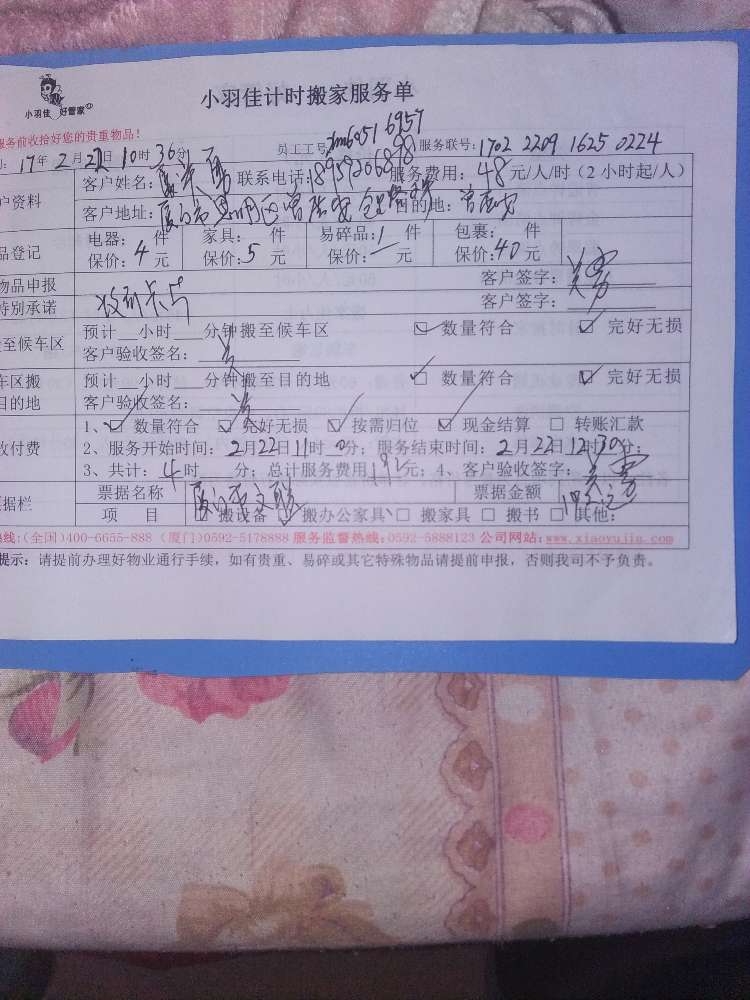 小羽佳 好管家
小羽佳计时搬家服务单
服务前收拾好您的贵重物品！
17年2月22日10时30分 员工工号 服务联号：1702 2209 1625 0224
户资料 客户姓名： 联系电话：18959206898 服务费用：48元/人/时（2小时起/人）
客户地址：厦门市思明区曾 目的地：曾
品登记 电器： 件 家具： 件 易碎品：1件 包裹： 件
保价：4元 保价：5元 保价：一元 保价：40元
物品申报 客户签字：
特别承诺 客户签字：
至候车区 预计 小时 分钟搬至候车区 ☑ 数量符合 ☑ 完好无损
客户验收签名：
车区搬 预计 小时 分钟搬至目的地 ☑ 数量符合 ☑ 完好无损
目的地 客户验收签名：
收付费 1、☑ 数量符合 ☑ 完好无损 ☑ 按需归位 ☑ 现金结算 □ 转账汇款
2、服务开始时间：2月22日11时 分；服务结束时间：2月22日12时30分；
3、共计：4时 分；总计服务费用192元；4、客户验收签字：
据栏 票据名称 票据金额
项 目 搬设备 搬办公家具 □ 搬家具 □ 搬书 □ 其他：
热线：（全国）400-6655-888（厦门）0592-5178888 服务监督热线：0592-5888123 公司网站：www.xiaoyujia.com
提示：请提前办理好物业通行手续，如有贵重、易碎或其它特殊物品请提前申报，否则我司不予负责。